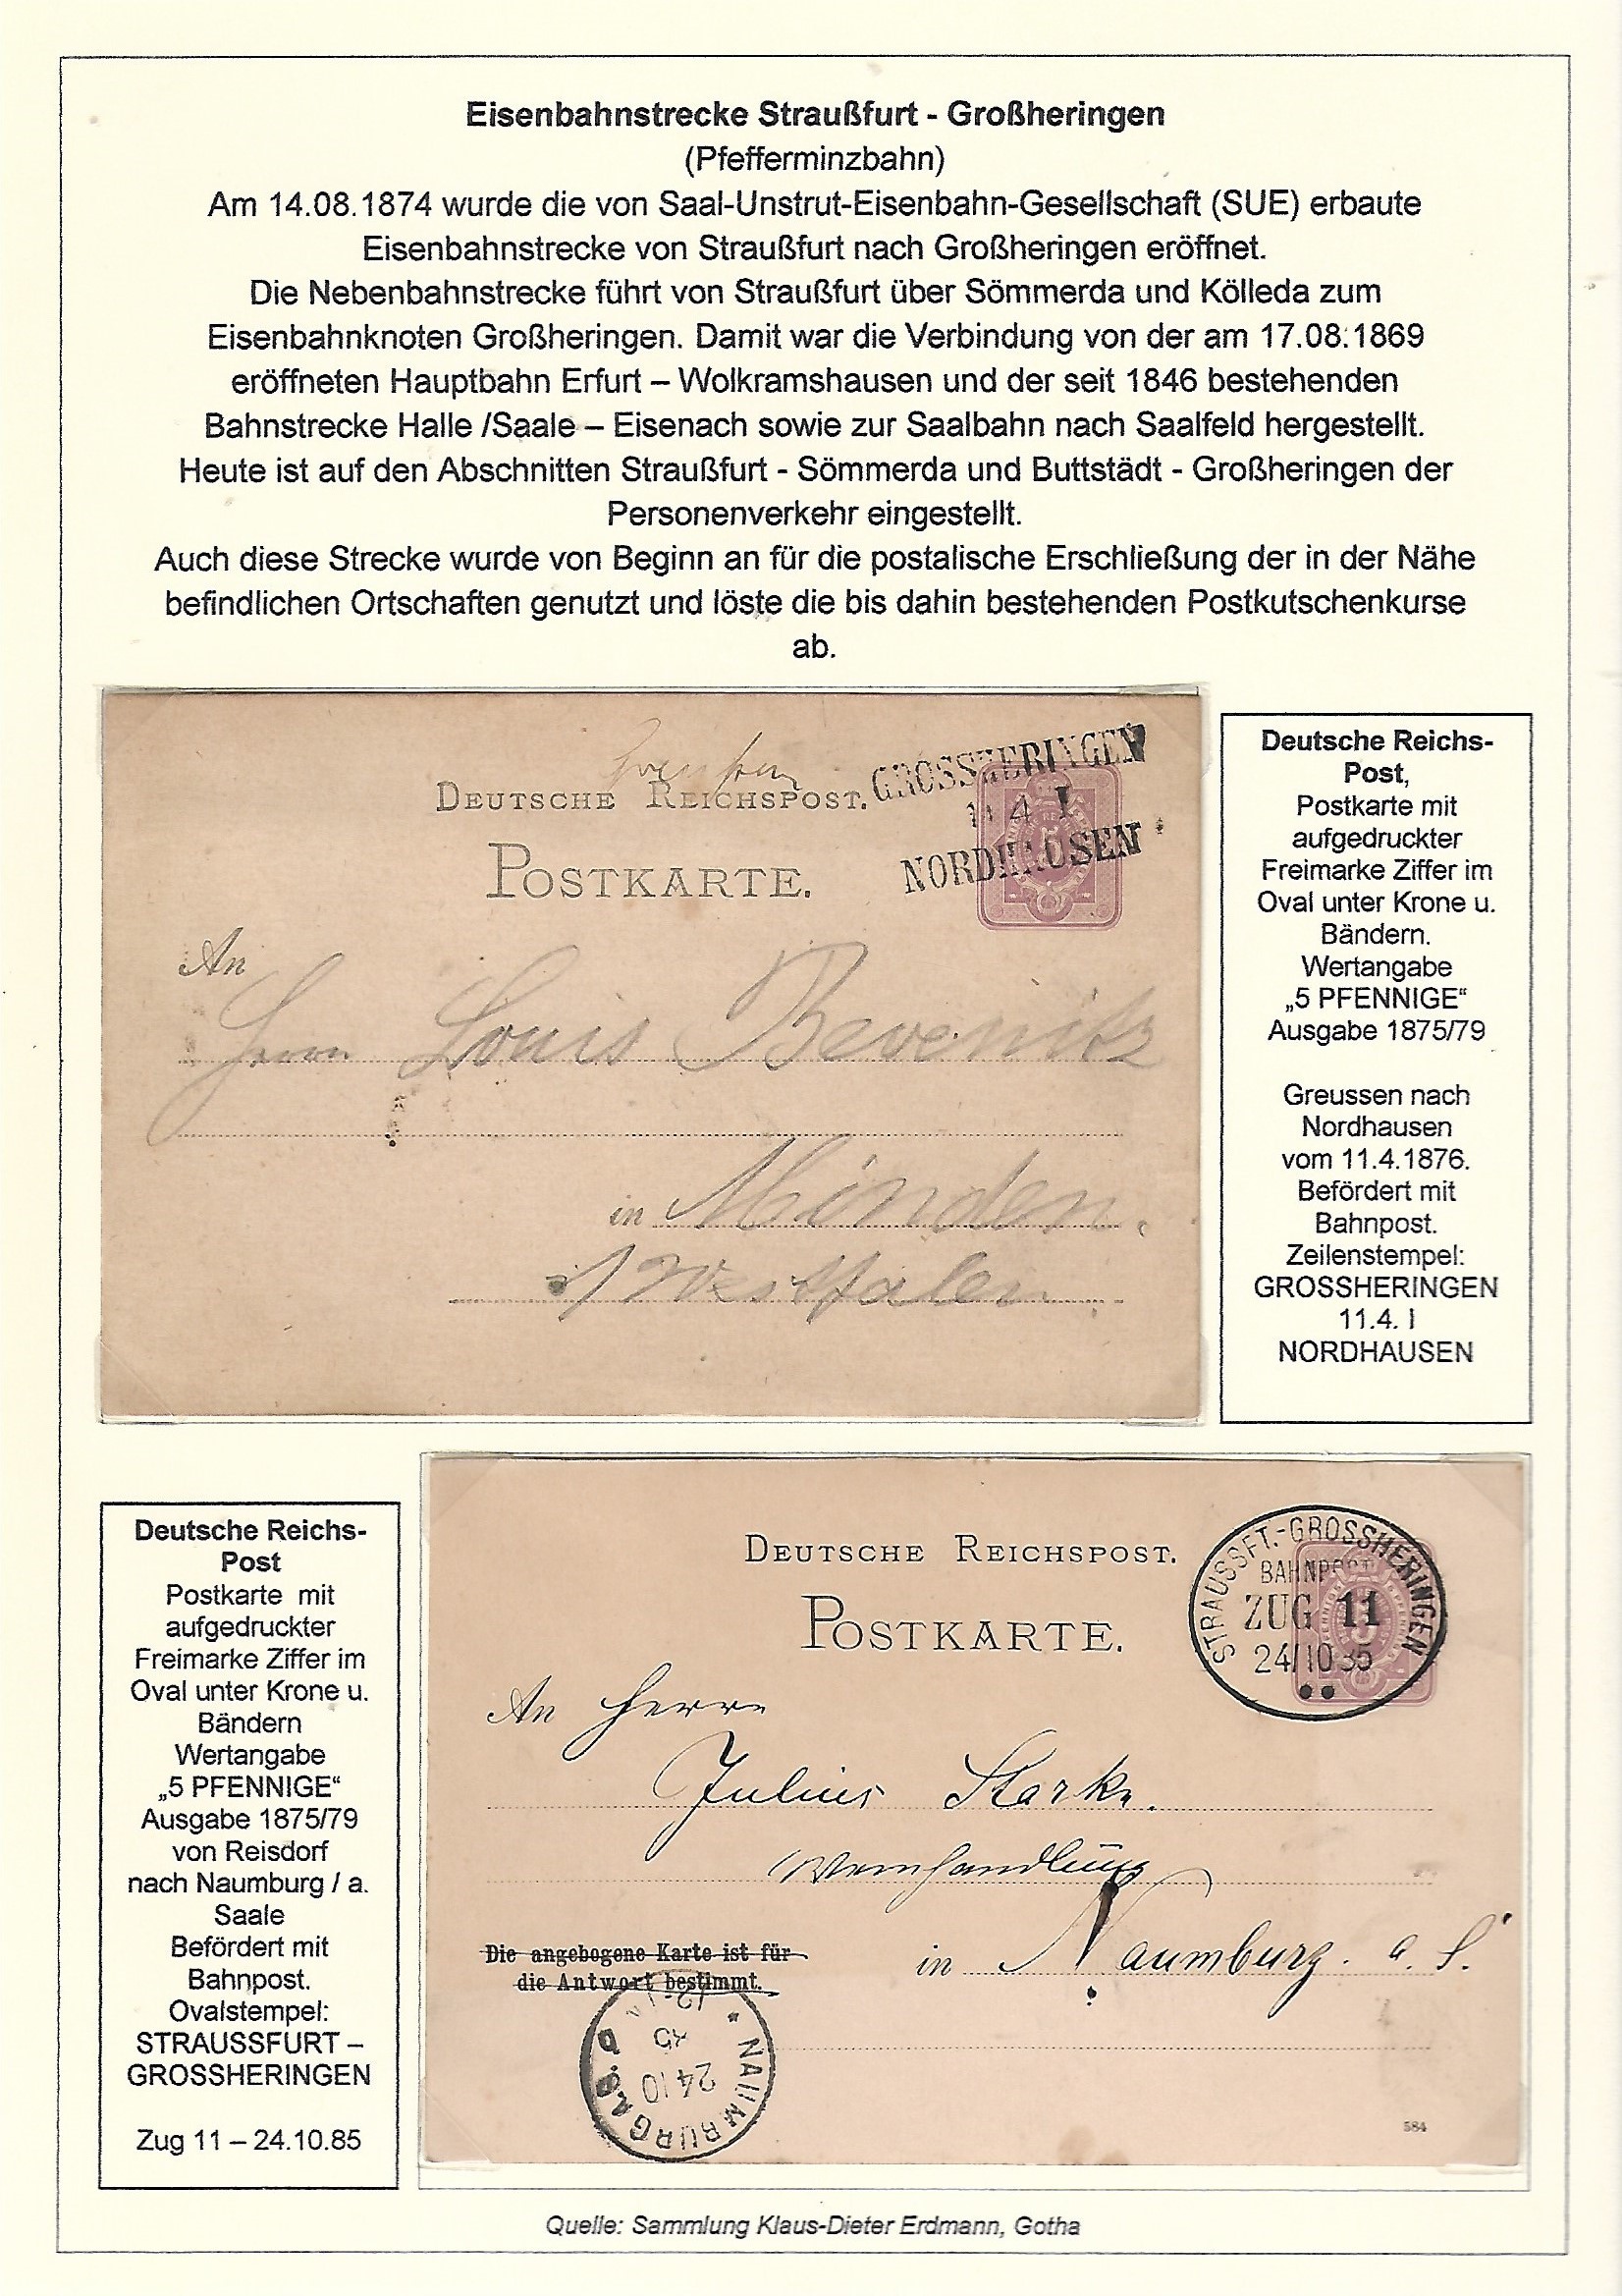 Eisenbahnstrecke Straußfurt - Großheringen
(Pfefferminzbahn)
Am 14.08.1874 wurde die von Saal-Unstrut-Eisenbahn-Gesellschaft (SUE) erbaute
Eisenbahnstrecke von Straußfurt nach Großheringen eröffnet.
Die Nebenbahnstrecke führt von Straußfurt über Sömmerda und Kölleda zum
Eisenbahnknoten Großheringen. Damit war die Verbindung von der am 17.08.1869
eröffneten Hauptbahn Erfurt – Wolkramshausen und der seit 1846 bestehenden
Bahnstrecke Halle /Saale – Eisenach sowie zur Saalbahn nach Saalfeld hergestellt.
Heute ist auf den Abschnitten Straußfurt - Sömmerda und Buttstädt - Großheringen der
Personenverkehr eingestellt.
Auch diese Strecke wurde von Beginn an für die postalische Erschließung der in der Nähe
befindlichen Ortschaften genutzt und löste die bis dahin bestehenden Postkutschenkurse
ab.
DEUTSCHE REICHSPOST.
POSTKARTE.
GROSSHERINGEN
11 4 I
NORDHAUSEN
An
Herrn Louis Bevenitz
in Minden.
/Westfalen.
Deutsche Reichs-
Post,
Postkarte mit
aufgedruckter
Freimarke Ziffer im
Oval unter Krone u.
Bändern.
Wertangabe
„5 PFENNIGE“
Ausgabe 1875/79
Greussen nach
Nordhausen
vom 11.4.1876.
Befördert mit
Bahnpost.
Zeilenstempel:
GROSSHERINGEN
11.4. I
NORDHAUSEN
Deutsche Reichs-
Post
Postkarte mit
aufgedruckter
Freimarke Ziffer im
Oval unter Krone u.
Bändern
Wertangabe
„5 PFENNIGE“
Ausgabe 1875/79
von Reisdorf
nach Naumburg / a.
Saale
Befördert mit
Bahnpost.
Ovalstempel:
STRAUSSFURT –
GROSSHERINGEN
Zug 11 – 24.10.85
DEUTSCHE REICHSPOST.
POSTKARTE.
STRAUSSFT.-GROSSHERINGEN
BAHNPOST
ZUG 11
24/10 85
An Herrn
Julius Starke.
Weinhandlung
in Naumburg. a. S.
Die angebogene Karte ist für
die Antwort bestimmt.
NAUMBURG a. S.
24 10
85
584
Quelle: Sammlung Klaus-Dieter Erdmann, Gotha